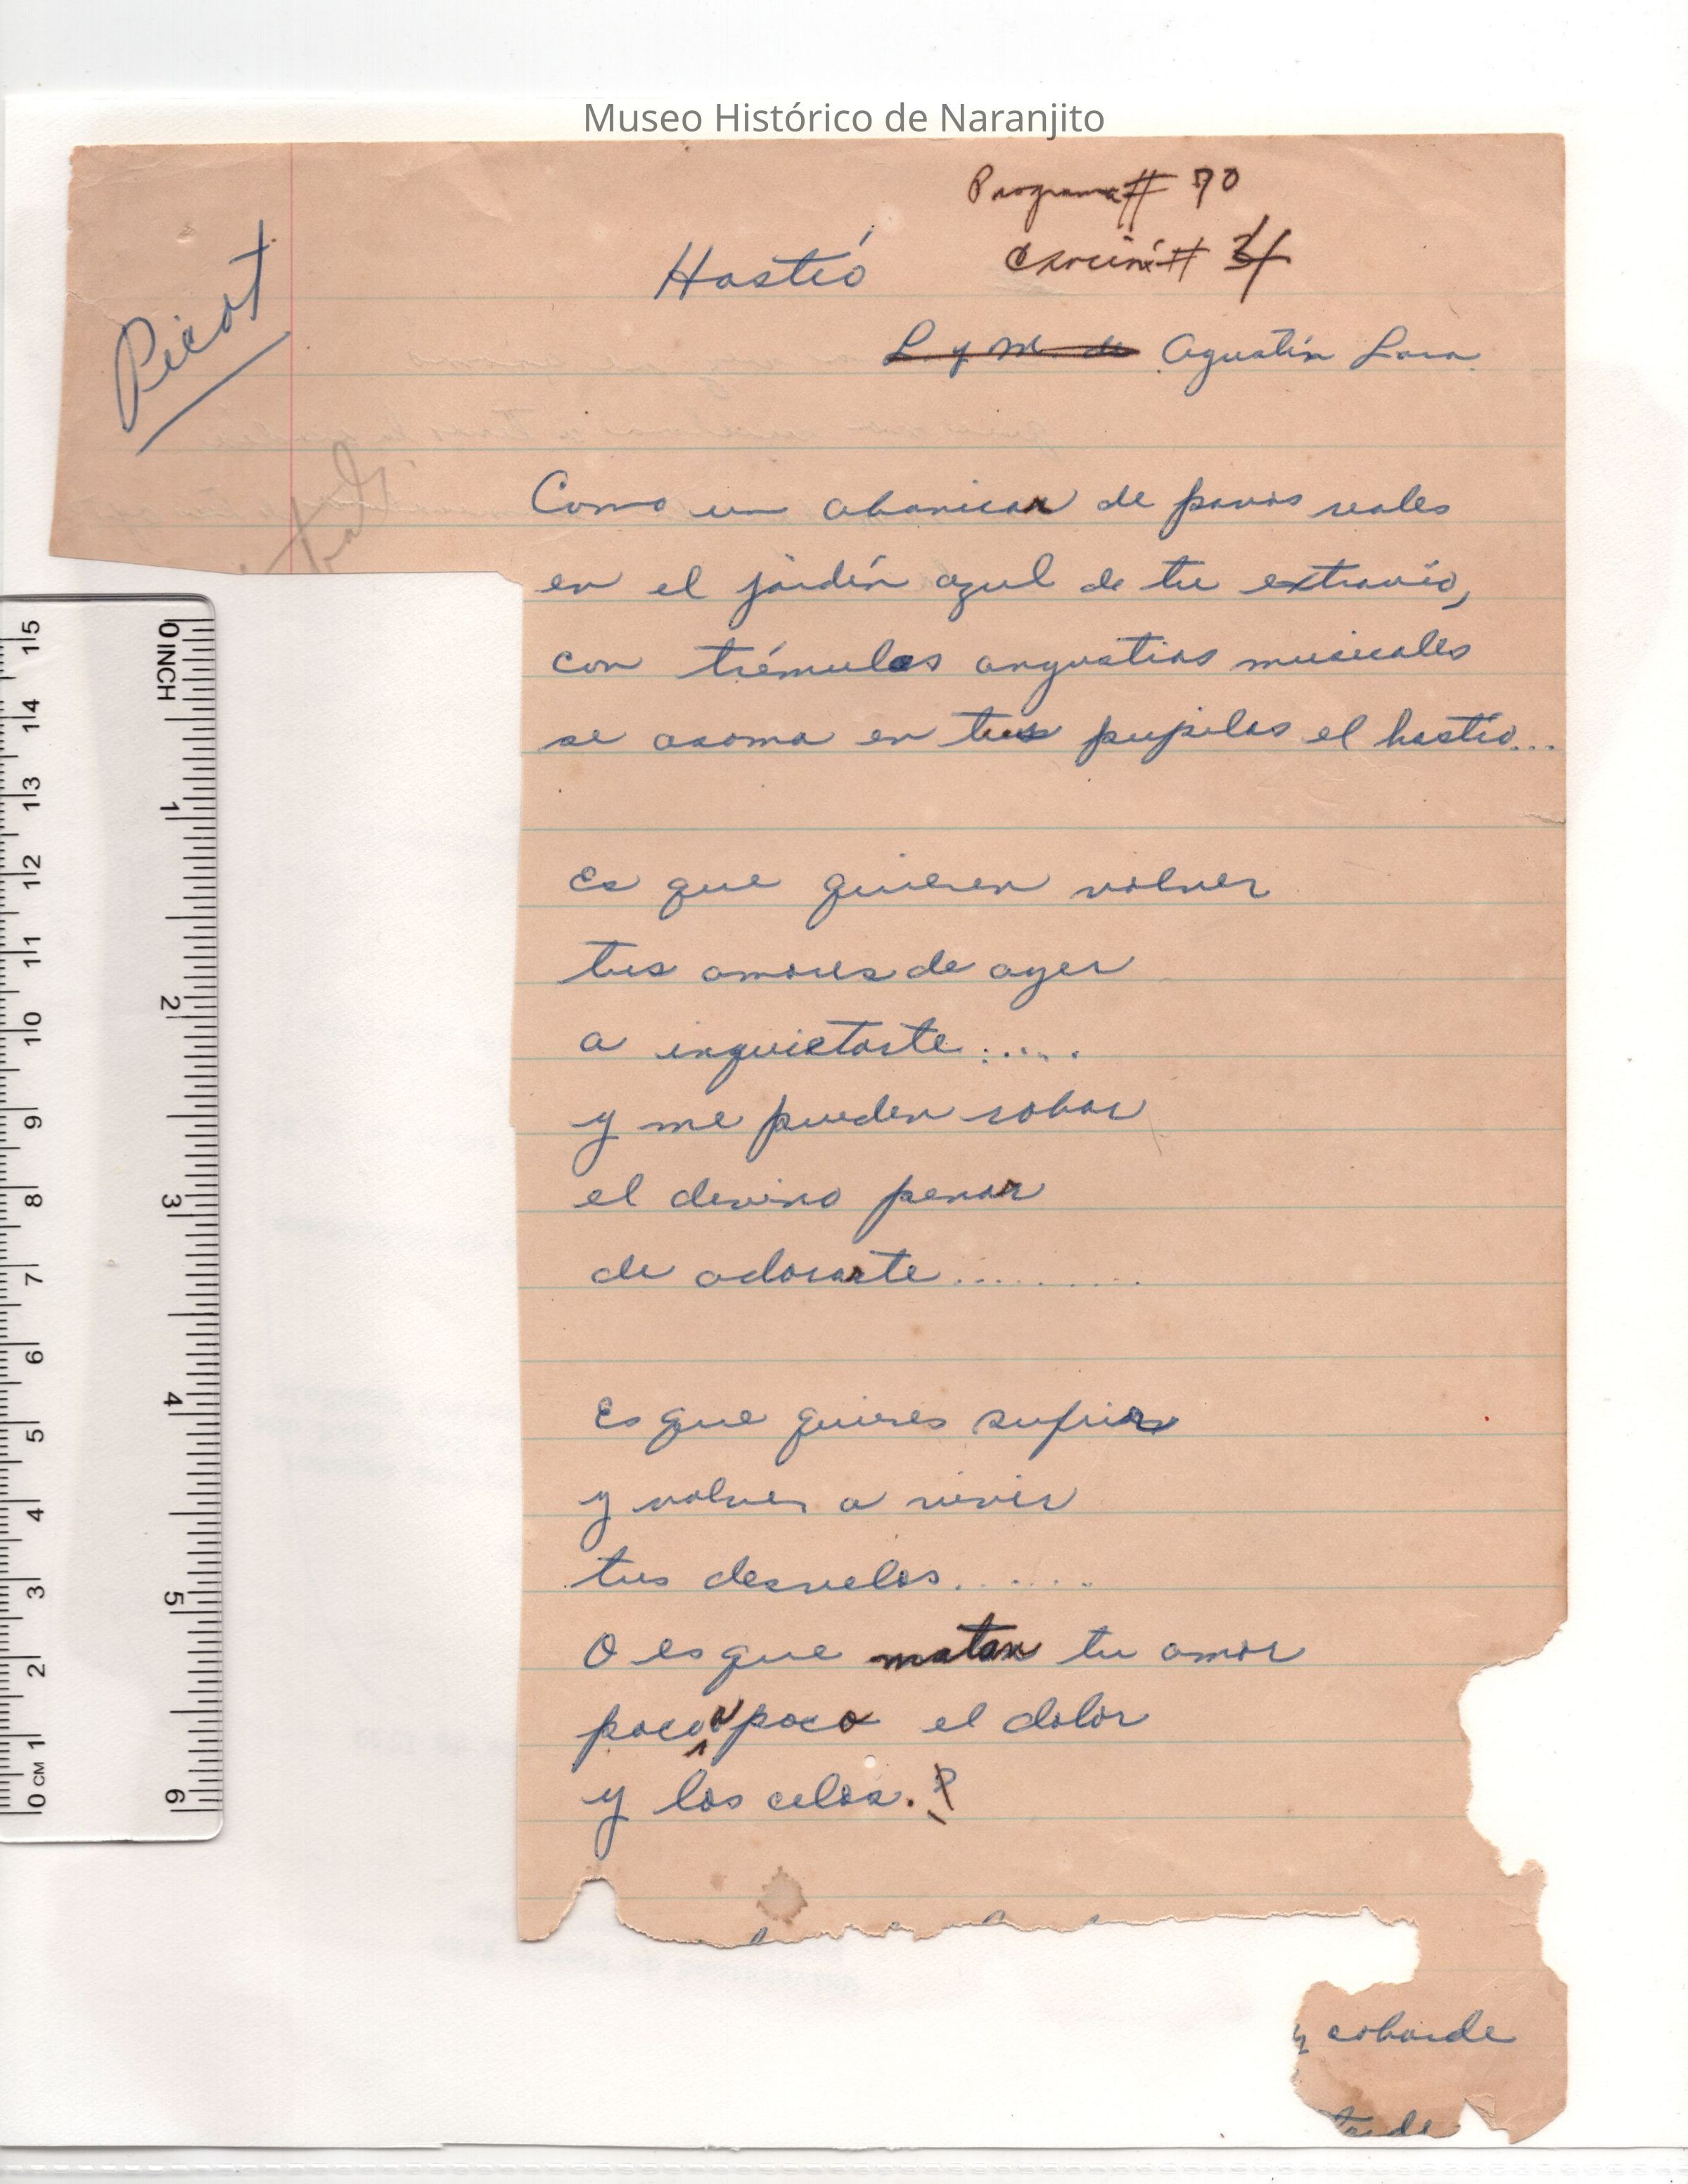 Museo Histórico de Naranjito
Programa # 70
Hastió
Canción # 34
Picot
L. y M. de Agustín Lara
Como un abanicar de pavos reales
en el jardín azul de tu extravío,
con trémulas angustias musicales
se asoma en tus pupilas el hastío...
Es que quieren volver
tus amores de ayer
a inquietarte.....
y me pueden robar
el divino penar
de adorarte.........
Es que quieres sufrir
y volver a vivir
tus desvelos......
O es que matan tu amor
poco a poco el dolor
y los celos.?
y cobarde
tarde
0 INCH 1 2 3 4 5 6
15 14 13 12 11 10 9 8 7 6 5 4 3 2 1 0 CM